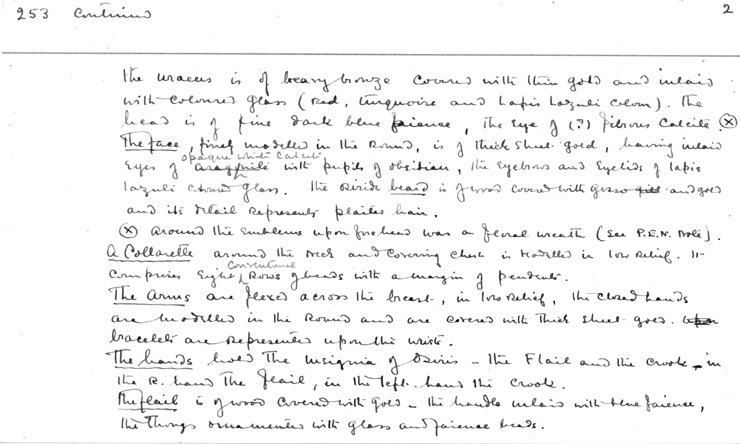 253 Continued
2
the uraeus is of heavy bronze covered with thin gold and inlaid
with coloured glass (red, turquoise and lapis lazuli colour). The
head is of fine dark blue faience, the eye of (?) fibrous calcite. ⊗
The face, finely modelled in the round, is of thick sheet-gold, having inlaid
opaque white calcite
eyes of with pupils of obsidian, the eyebrows and eyelids of lapis
lazuli coloured glass. The Osiride beard is of wood covered with gesso and gold
and its detail represents plaited hair.
⊗ Around the emblems upon forehead was a floral wreath (see P.E.N. note).
A Collarette around the neck and covering chest is modelled in low relief. It
Conventional
comprises eight rows of beads with a margin of pendents.
The Arms are flexed across the breast, in low relief, the closed hands
are modelled in the round and are covered with thick sheet-gold.
bracelets are represented upon the wrists.
The hands hold the insignia of Osiris - the Flail and the Crook - in
the R. hand the flail, in the left hand the crook.
The flail is of wood covered with gold - the handle inlaid with blue faience,
the thongs ornamented with glass and faience beads.